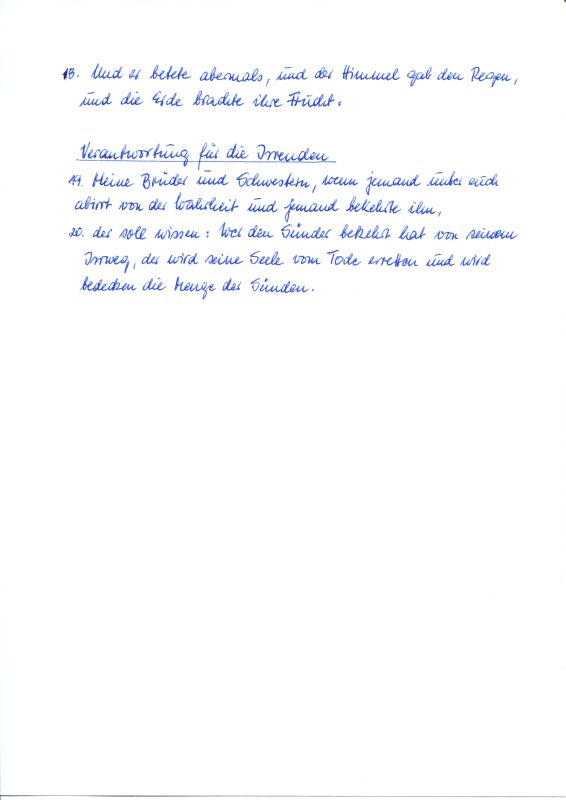 18. Und er betete abermals, und der Himmel gab den Regen,
und die Erde brachte ihre Frucht.
Verantwortung für die Irrenden
19. Meine Brüder und Schwestern, wenn jemand unter euch
abirrt von der Wahrheit und jemand bekehrte ihn,
20. der soll wissen: Wer den Sünder bekehrt hat von seinem
Irrweg, der wird seine Seele vom Tode erretten und wird
bedecken die Menge der Sünden.